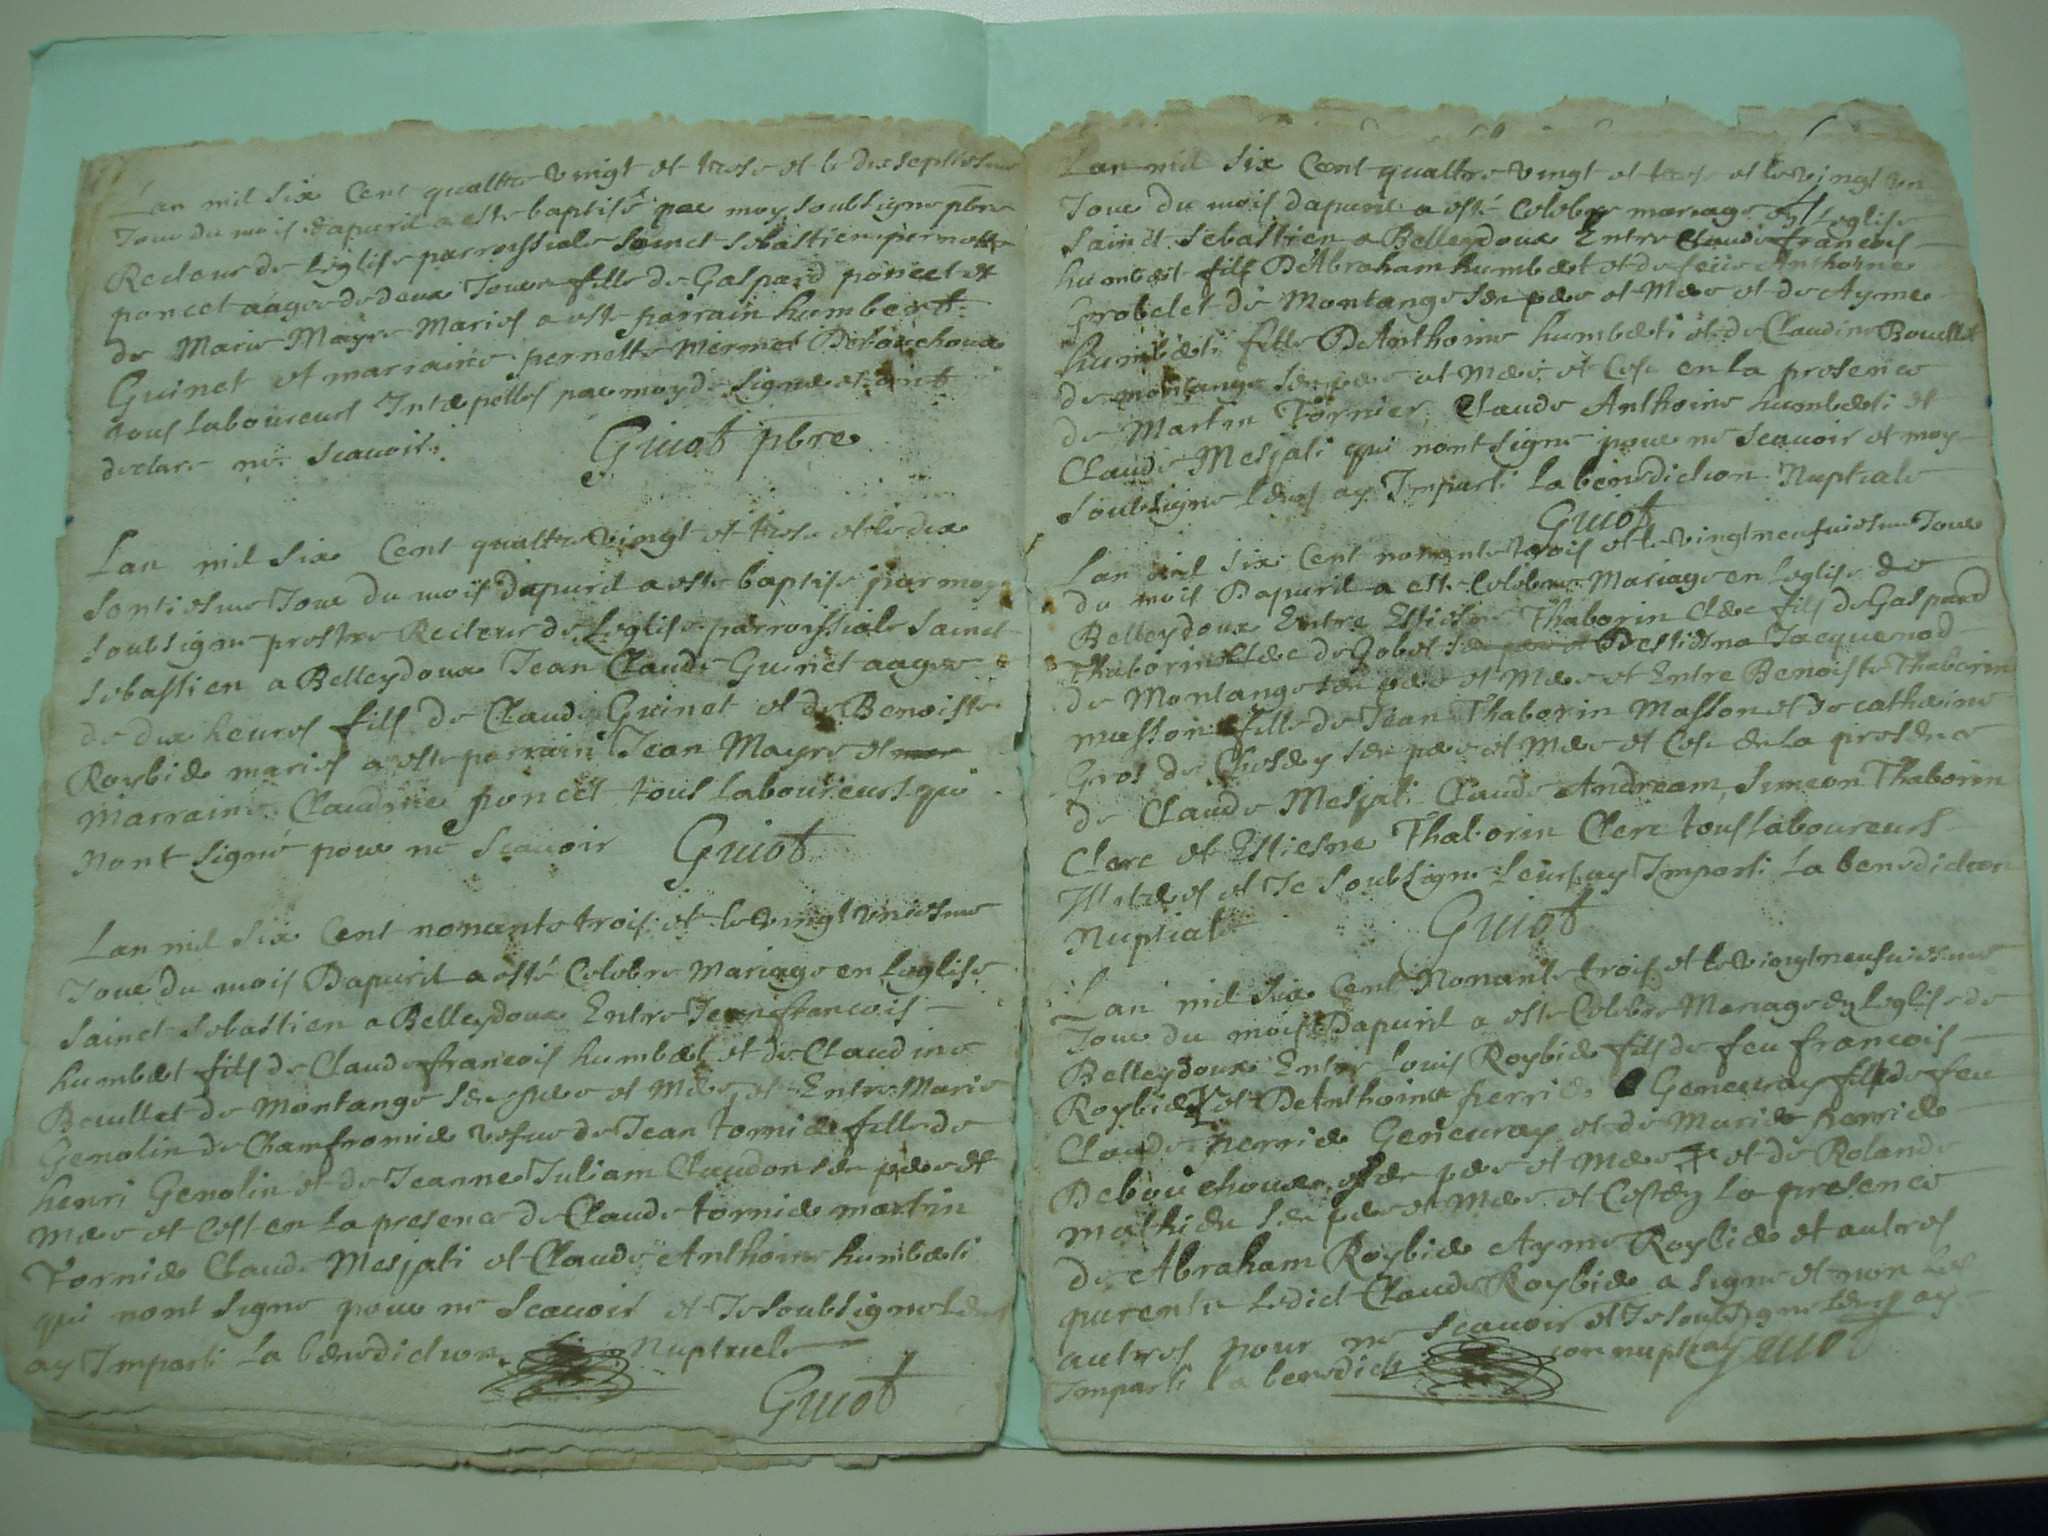 Lan mil six Cent quattre vingt et trese et le dix septiesme
Jour du mois dapuril a este baptise par moy soubsigne pbre
Recteur de Leglise parrochiale sainct sebastien pernette
poncet aagee de deux Jours fille de Gaspard poncet et
de Marie Mayre Mariés a este parrain humbert
Guinet et marraine pernette Mermet Debouchoux
tous Laboureurs Interpelles par moy de signer et ont
declare ne scauoir.
Guiot pbre
Lan mil six Cent quattre vingt et trese et le dix
septiesme Jour du mois dapuril a este baptise par moy
soubsigne prestre Recteur de Leglise parrochiale sainct
sebastien a Belleydoux Jean Claude Guinet aagee
de dix heures fils de Claude Guinet et de Benoiste
Roybier mariés a este parrain Jean Mayre et mar
Marraine Claudine poncet tous Laboureurs qui
nont signé pour ne scauoir Guiot
Lan mil six Cent nonante trois et le vingt vniesme
Jour du mois Dapuril a esté Celebre Mariage en Leglise
sainct sebastien a Belleydoux Entre Jean francois
humbert fils de Claude francois humbert et de Claudine
Bouillet de Montange ses pere et Mere et Entre Marie
Genolin de Chamfromier vefue de Jean tornier fille de
henri Genolin et de Jeanne Juliam Claudon ses pere et
Mere et Cest en La presence de Claude tornier martin
Tornier Claude Mesjati et Claude Anthoine humberti
qui nont signe pour ne scauoir et Je soubsigne Leurs
ay Imparti La benediction Nuptiale
Guiot
Lan mil six Cent quattre vingt et trese et le vingt vn
Jour du mois dapuril a esté Celebre mariage en Leglise
sainct sebastien a Belleydoux Entre Claude francois
humbert fils DAbraham humbert et de feüe Anthoine
probelet de Montange ses pere et Mere et de Ayme
humberti fille DAnthoine humberti et de Claudine Bouillet
de montange ses pere et Mere et Cest en La presence
de Martin Tornier, Claude Anthoine humberti et
Claude Mesjati qui nont signe pour ne scauoir et moy
soubsigne Leurs ay Imparti La benediction Nuptiale
Guiot
Lan mil six Cent nonante trois et le vingtneufuiesme Jour
du mois Dapuril a este Celebre Mariage en Leglise de
Belleydoux Entre Estiesne Thaborin Clerc fils de Gaspard
Thaborin Clerc de Jobet Destiesna Jacquenod
de Montange ses pere et Mere et Entre Benoiste Thaborin
masson fille de Jean Thaborin Masson et de catherine
Gros de ses pere et Mere et Cest en La presence
de Claude Mesjati Claude Andream, simeon Thaborin
Clerc et Estiesne Thaborin Clerc tous Laboureurs
Illiterés et Je soubsigne Leurs ay Imparti La benediction
Nuptiale Guiot
Lan mil six Cent Nonante trois et le vingtneufuiesme
Jour du mois Dapuril a este Celebre Mariage en Leglise de
Belleydoux Entre Louis Roybier fils de feu francois
Roybier et DAnthoina perrier Geneuray fille de feu
Claude perrier Geneuray et de Marie perrier
Debouchoux ses pere et Mere et de Rolande
mathieu ses pere et Mere et Cest en La presence
de Abraham Roybier Ayme Roybier et autres
parents Ledict Claude Roybier a signe et non Les
autres pour ne scauoir et Je soubsigne Leurs ay
Imparti La benediction nuptialle Guiot